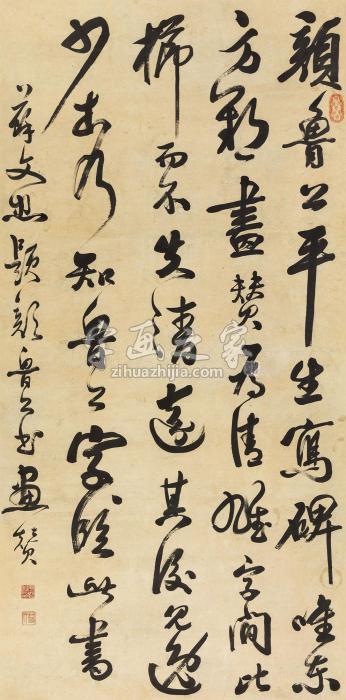 顏魯公平生寫碑唯東
方朔畫贊為清雄字間比
櫛而不失清遠其後見逸
少本乃知魯公字臨此書
蘇文忠題顏魯公書畫贊
字画之家
zihuazhijia.com